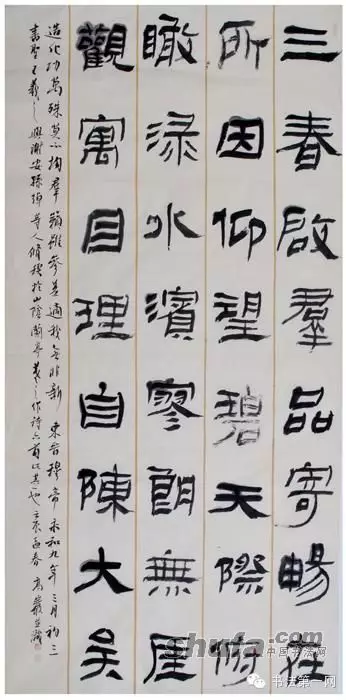 三春啟羣品寄暢在
所因仰望碧天際俯
瞰淥水濱寥朗無厓
觀寓目理自陳大矣
造化功萬殊莫不均羣籟雖參差適我無非新 東晉穆帝永和九年三月初三
書聖王羲之與謝安孫綽等人脩禊於山陰蘭亭羲之作詩六首此其一也 壬辰孟春
shufa.com
中国书法网
书法第一网